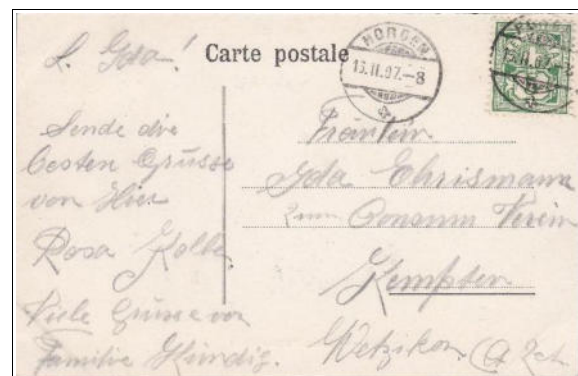 L. Ida!
Carte postale
HORGEN
13.II.07.–8
Sende die
besten Grüsse
von Hier
Rosa Kolb
Viele Grüsse von
Familie Hürdig.
Fräulein
Ida Ehrismann
zum Consum Verein
Kempten
Wetzikon